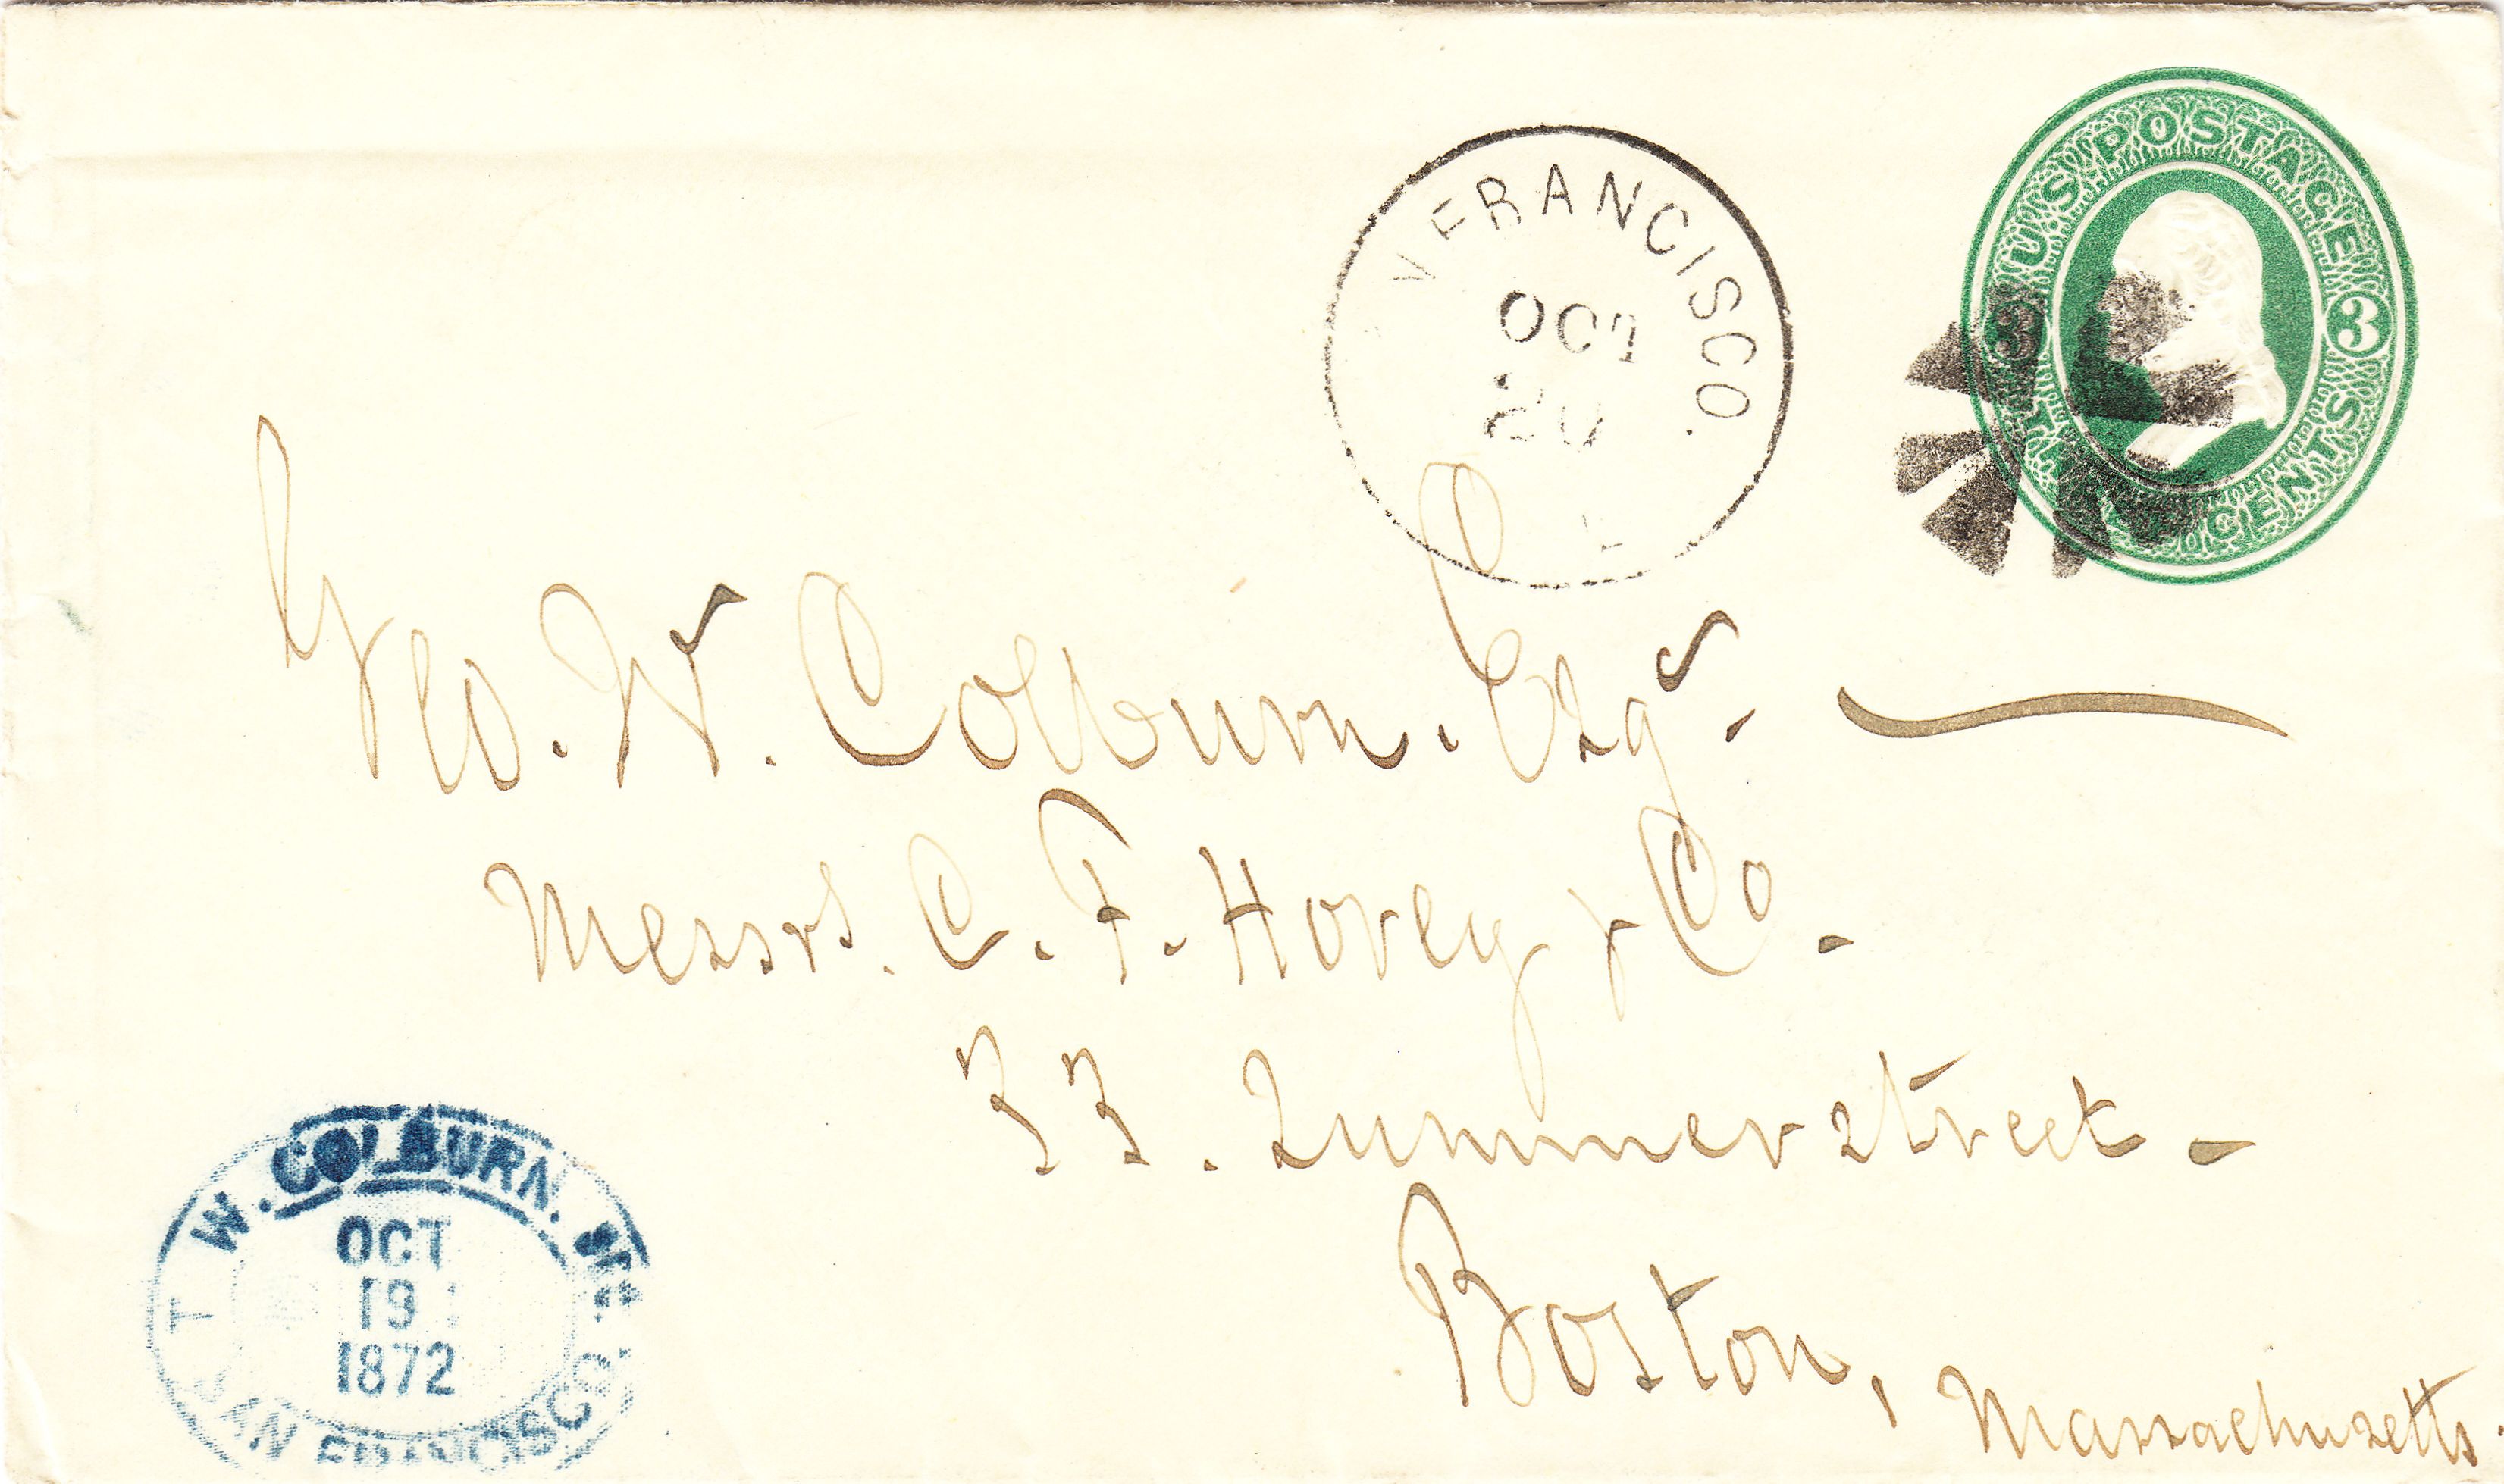 U.S. POSTAGE
3 3
CENTS
FRANCISCO.
OCT
20
Geo. W. Colburn. Esqr.
Messrs. C. F. Hovey & Co.
33. Summer Street
Boston,
Massachusetts.
W. COLBURN.
OCT
19
1872
SAN FRANCISCO